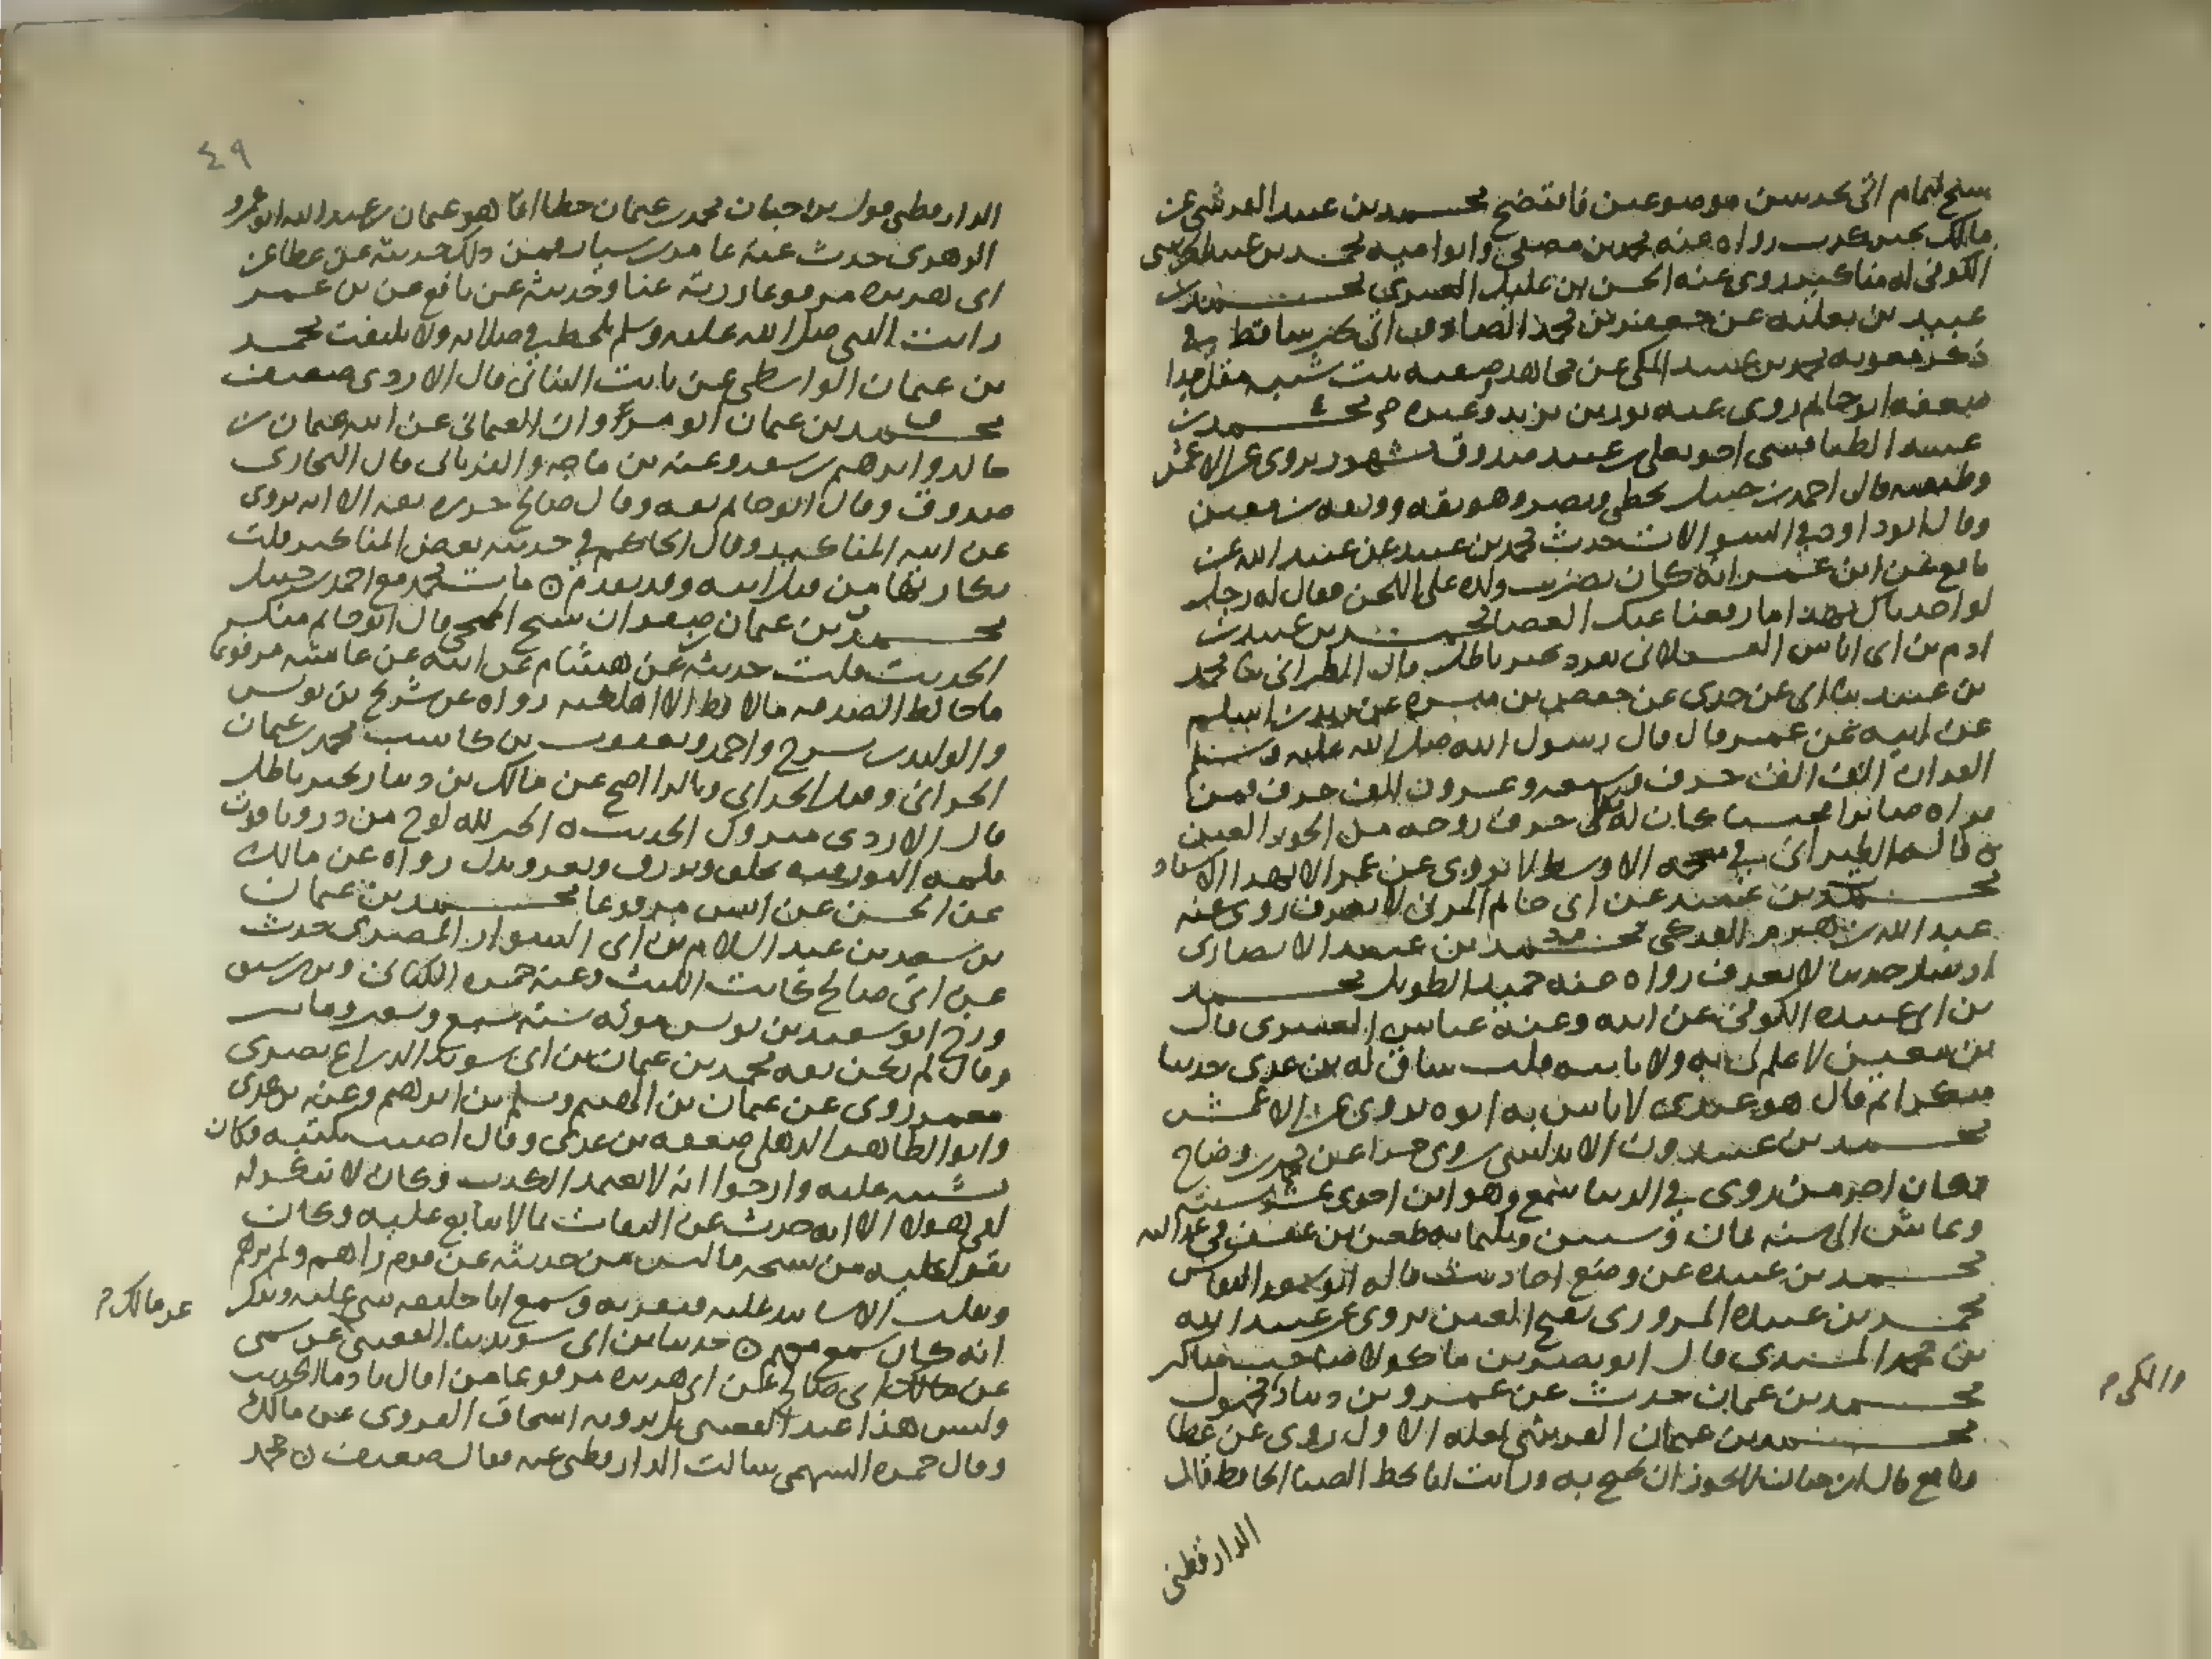 شيخ لتمام اتى بحديثين موضوعين فافتضح محمد بن عبيد القرشي عن
مالك بخبر كذب رواه عنه محمد بن مصفى وابو اميه محمد بن عبيد
الكوفي له مناكير روى عنه الحسن بن عليل العنزي محمد بن
عبيد بن ثعلبه عن جعفر بن محمد الصادق اتى بخبر ساقط في
ذكر معويه محمد بن عبيد المكي عن مجاهد صفيه بنت شيبه مقل جدا
ضعفه ابو حاتم روى عنه ثور بن يزيد وغيره محمد بن
عبيد الطنافسي اخو يعلى بن عبيد صدوق مشهور يروى عن الاعمش
وطبقته قال احمد بن حنبل يخطي ويصر وهو ثقه ووثقه بن معين
وقال ابو داود في السوالات حدث محمد بن عبيد عن عبيد الله عن
نافع عن ابن عمر انه كان يضرب ولده على اللحن فقال له رجل
لو اخذناك بهذا ما رفعنا عنك العصا محمد بن عبيد بن
ادم بن ابي اياس العسقلاني تفرد بخبر باطل قال الطبراني ثنا محمد
بن عبيد ثنا ابي عن جدي عن حفص بن ميسره عن زيد بن اسلم
عن ابيه عن عمر قال قال رسول الله صلى الله عليه وسلم
القران الف الف حرف وسبعه وعشرون الف حرف فمن
قراه صابرا محتسبا كان له بكل حرف زوجه من الحور العين
قال الطبراني في معجمه الاوسط لا يروى عن عمر الا بهذا الاسناد
محمد بن عبيد عن ابي حاتم المزني لا يعرف روى عنه
عبد الله بن هرمز الفدكي محمد بن عبيد الانصاري
ارسل حديثا لا يعرف رواه عنه حميد الطويل محمد
بن ابي عبيده الكوفي عن ابيه وعنه عباس العنبري قال
بن معين لا علم لي به ولا بابيه قلت ساق له بن عدي حديثا
منكرا ثم قال هو عندي لا باس به ابوه يروى عن الاعمش
محمد بن عبدون الاندلسي روى جزا عن محمد بن وضاح
وكان اخر من روى في الدنيا سمع وهو ابن احدى عشره سنه
وعاش الى سنه وتكلما به طعن بن عفيف
محمد بن عبيده عن وضع احاديث قاله ابو سعيد النقاش
محمد بن عبيده المروزي بفتح العين يروى عن عبد الله
بن محمد المسندي قال ابو نصر بن ماكولا صاحب مناكير
محمد بن عثمان حدث عن عمرو بن دينار مجهول
محمد بن عثمان القرشي لعله الاول روى عن عطا
ونافع قال ابن حبان لا يجوز ان يحتج به ورايت لنا بخط الضيا الحافظ قال
الدارقطني
٤٩
الدارقطني قول بن حبان محمد بن عثمان خطا انما هو عثمان بن عبد الله ابو عمرو
الزهري حدث عنه عامر بن سيار فمن ذلك حديثه عن عطا عن
ابي هريره مرفوعا زر غبا وحديثه عن نافع عن بن عمر
رايت النبي صلى الله عليه وسلم يلحظ في صلاته ولا يلتفت محمد
بن عثمان الواسطي عن ثابت البناني قال الازدي ضعيف
محمد بن عثمان ابو مروان العثماني عن ابيه عثمان بن
خالد وابرهيم بن سعد وعنه بن ماجه والفريابي قال البخاري
صدوق وقال ابو حاتم ثقه وقال صالح جزره ثقه الا انه يروى
عن ابيه المناكير وقال الحاكم في حديثه بعض المناكير قلت
نكارتها من قبل ابيه وقد تقدم
محمد بن عثمان بن صفوان شيخ الجمحي قال ابو حاتم منكر
الحديث قلت حديثه عن هشام عن ابيه عن عائشه مرفوعا
ما خالط الصدقه مالا قط الا اهلكته رواه عن شريح بن يونس
محمد بن عثمان
الحراني وقيل الحداني عن مالك بن دينار بخبر باطل
قال الازدي متروك الحديث الخبر لله لوح من در وياقوت
قلمه النور فيه يخلق ويرزق ويعز ويذل رواه عن مالك
عن الحسن عن انس مرفوعا محمد بن عثمان
بن سعيد بن عبد السلام بن ابي السوار المصري حدث
عن ابي صالح كاتب الليث وعنه حمزه الكناني وبن رشيق
ورخ ابو سعيد بن يونس موته سنه سبع وتسعين ومايتين
وقال لم يكن ثقه محمد بن عثمان بن ابي سويد الذراع بصري
معمر روى عن عثمان بن الهيثم ومسلم بن ابراهيم وعنه بن عدي
وابو الطاهر الذهلي ضعفه بن عدي وقال اصيب بكتبه فكان
يشبه عليه وارجوا انه لا يتعمد الكذب وكان لا ينكر له
لقي هولا الا انه حدث عن الثقات بما لا يتابع عليه وكان
يقرا عليه من نسخه ما ليس من حديثه عن قوم راهم ولم يرهم
وتقلب الاسانيد عليه فيقر به وسمع ابا خليفه يثني عليه ويذكر
عن مالك
انه كان سمع معهم حدثنا بن ابي سويد ثنا القعنبي عن سمي
عن ابي صالح عن ابي هريره مرفوعا من اقال نادما الحديث
وليس هذا عند القعنبي بل يرويه اسحاق الفروي عن مالك
وقال حمزه السهمي سالت الدارقطني عنه فقال ضعيف محمد